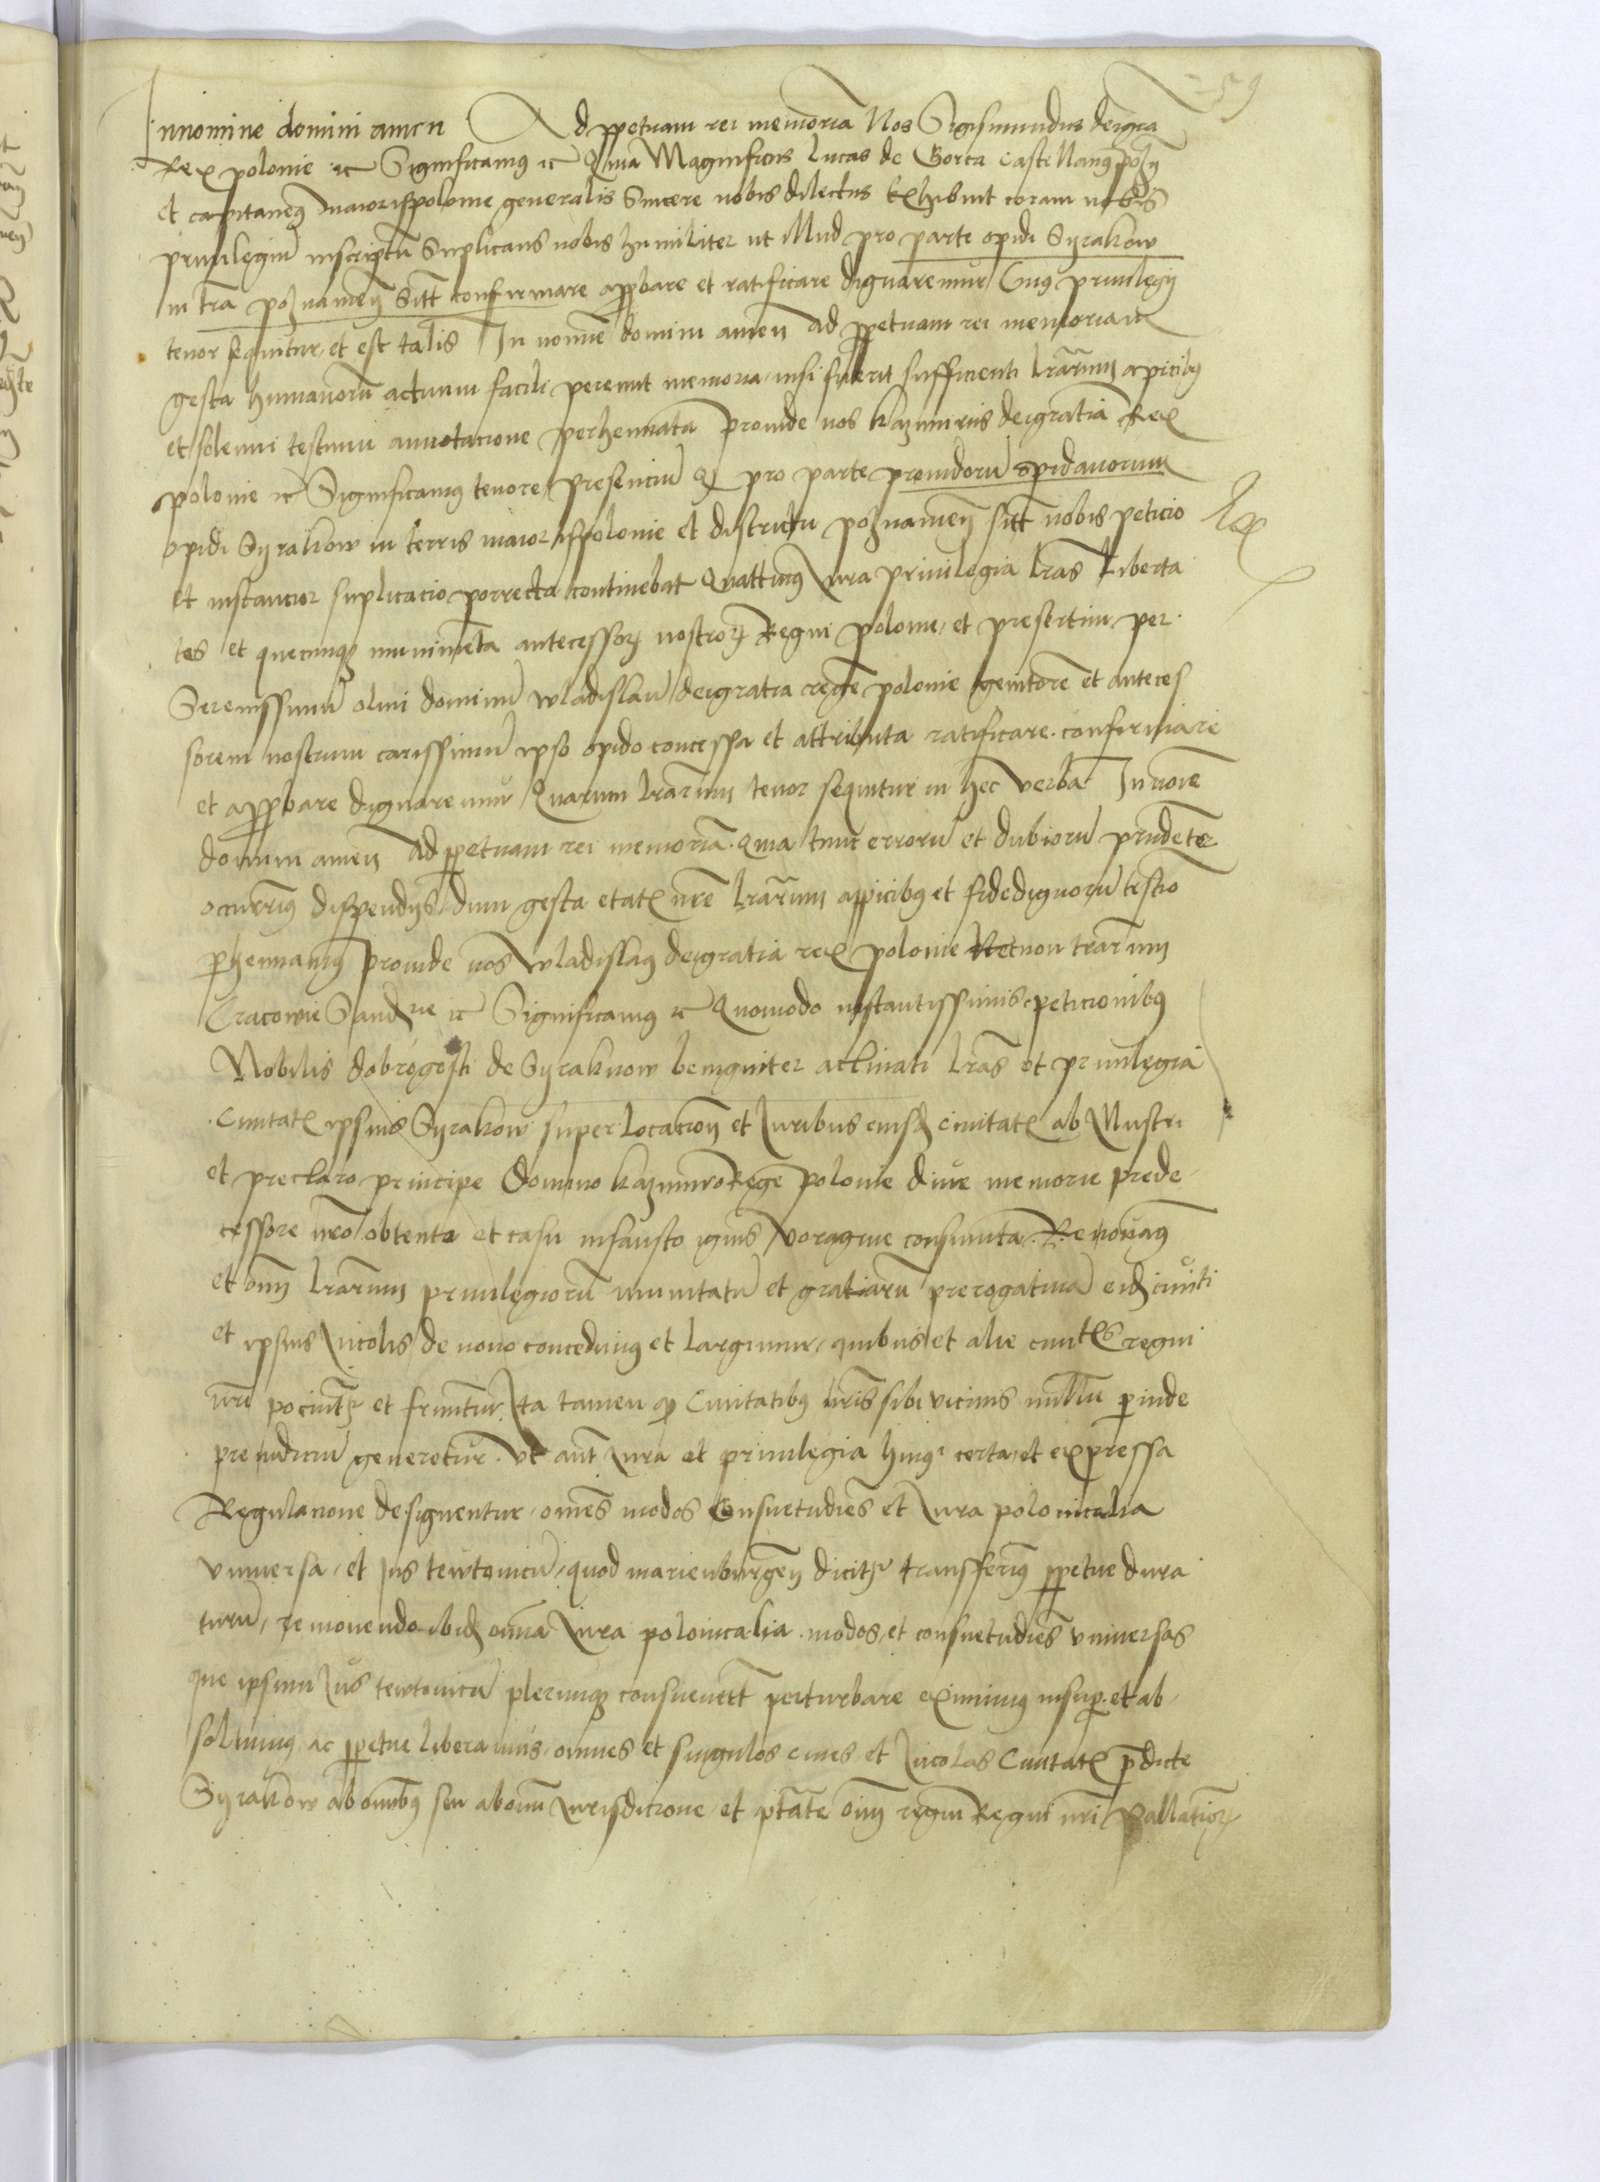 59
In nomine domini amen Ad ppetuam rei memoria Nos Sigismundus deigra
Rex polonie ic Significamus ic Quia Magnificus Lucas de Gorca castellanus pozn
et capitaneus maiorispolonie generalis Sincere nobis dilectus Exhibuit coram nobis
privilegiu inscriptu Suplicans nobis humiliter ut illud pro parte opidi Syrakow
in tra poznamen sitt confirmare appbare et ratificare dignaremur Cuius privilegy
tenor sequitur et est talis In nomie domini amen ad ppetuam rei memoriam
gesta humanoru actuum facili pereunt memoria nisi fuerit sufficienti lrarum apicibus
et solenni testimu annotacione perhennata proinde nos kazimirus deigratia Rex
polonie ic Significamus tenore presenciu q pro parte prouidoru opidanorum
opidi Syrakow in terris maiorispolonie et districtu poznamen sitt nobis peticio
et instancior suplicacio porrecta continebat Quattinus iura privilegia lras liberta
tes et quecunqz munimeta antecessorz nostrorz Regni polonie et presertim per
Serenissimu olim dominu wladislau deigratia rege polonie genitore et anteces
sorem nostrum carissimu ipso opido concessa et attributa ratificare confirmare
et appbare dignaremur Quarum lrarum tenor sequitur in hec verba In noie
domini amen Ad ppetuam rei memoria Quia tunc erroru et dubioru prudeter
occurrimus dispendys dum gesta etatis nre lrarum appicibus et fidedignoru testio
phennamus proinde nos wladislaus deigratia rex polonie Necnon trarum
Cracovie Sandrie ic Significamus ic Quomodo instantissimis peticionibus
Nobilis dobrogosti de Syrakow benigniter acclinati lras et privilegia
civitatis ipsius Syrakow super locacion et iuribus eiusd civitatis ab Illustri
et preclaro principe Domino kazimiro Rege polonie dive memorie prede
cessore nro obtenta et casu infausto ignis voragine consumta Renovamus
et oim lrarum privilegioru imunitatu et gratiaru prerogativa eidz civiti
et ipsius incolis de novo concedimus et largimur quibus et alie civites regni
nri pociunt et fruuntur Ita tamen q Civitatibus nris sibi vicinis nullu pinde
preiudiciu generetur Ut aut iura et privilegia huius certa et expressa
Regulacione designentur omes modos Consuetudies et iura polonicalia
universa et ius tewtonicu quod marienburgen dicitr transferimus ppetue dura
turu removendo ibidz omia iura polonicalia modos et consuetudies universas
que ipsum ius tewtonicu plerunqz consuevertt perturbare eximimus insup et ab
solvimus ac ppetue liberamus omnes et singulos cives et incolas Civitatis pdicte
Syrakow ab omibus seu ab omi iurisdicione et ptate oim regni Regni nri pallatior